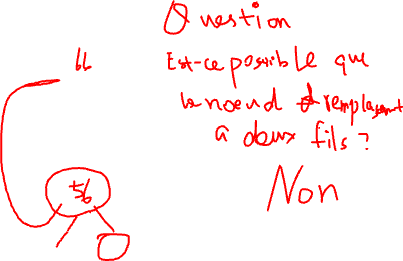 Question
66
Est-ce possible que
le noeud remplaçant
a deux fils ?
56
Non